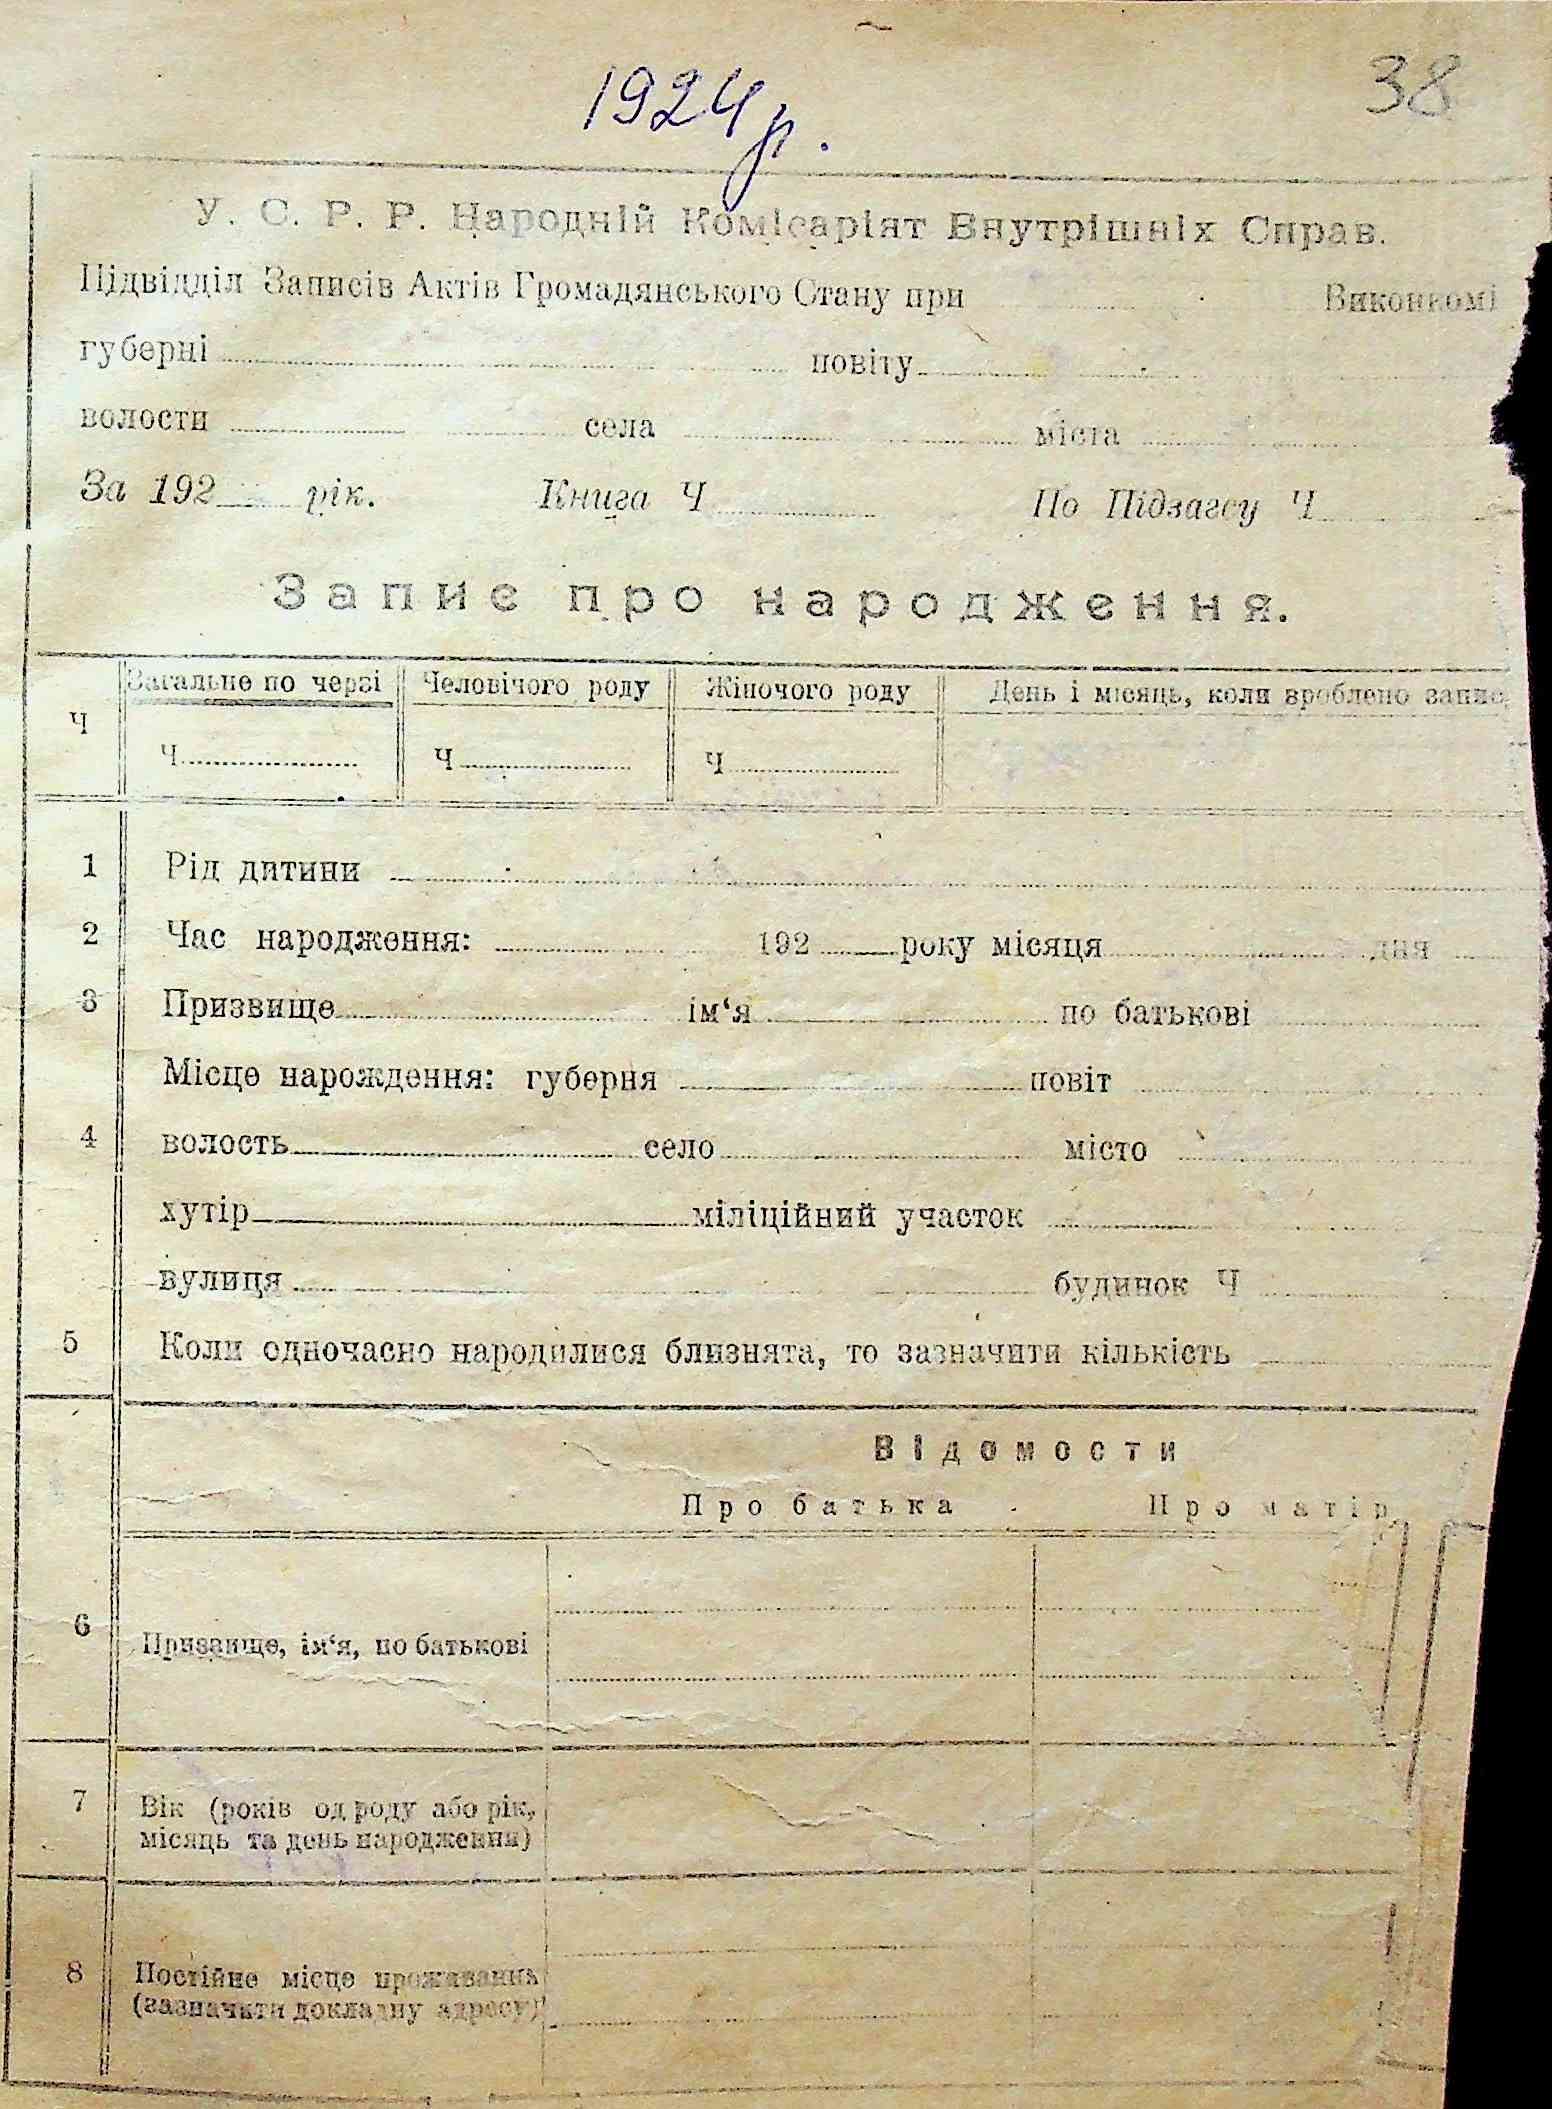 1924 р.
38
У. С. Р. Р. Народній Комісаріят Внутрішніх Справ.
Підвідділ Записів Актів Громадянського Стану при Виконкомі
губерні повіту
волости села міста
За 192 рік. Книга Ч По Підзагсу Ч
Запис про народження.
Ч Загальне по черзі Человічого роду Жіночого роду День і місяць, коли вроблено запис
Ч Ч Ч
1 Рід дитини
2 Час народження: 192 року місяця дня
3 Призвище ім‘я по батькові
Місце нарождення: губерня повіт
4 волость село місто
хутір міліційний участок
вулиця будинок Ч
5 Коли одночасно народилися близнята, то зазначити кількість
Відомости
Про батька Про матір
6 Призвище, ім‘я, по батькові
7 Вік (років од роду або рік,
місяць та день народження)
8 Постійне місце проживання
(зазначити докладну адресу)